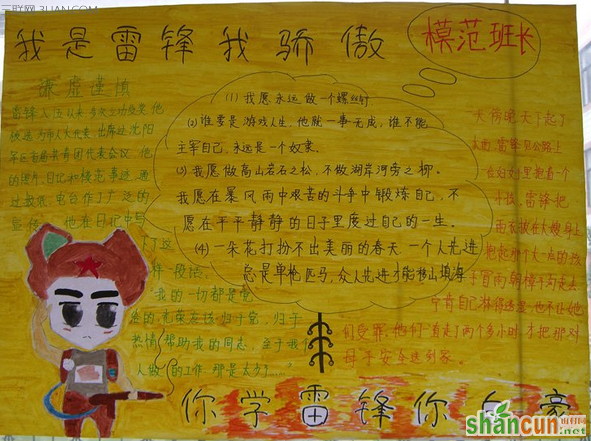 三联网 3LIAN.COM
我是雷锋我骄傲
模范班长
谦虚谨慎
雷锋入伍以来多次立功受奖他
被选为市人大代表出席过沈阳
军区首届共青团代表会议他
的照片、日记和模范事迹通
过报纸、电台作了广泛的
宣传。他在日记中写
了这
件段话:
我的一切都是党
给的,光荣应该归于党,归于
热情帮助我的同志,至于我个
人做的工作那是太少了……"
(1)我愿永远做一个螺丝钉
(2)谁要是游戏人生,他就一事无成,谁不能
主宰自己,永远是一个奴隶。
(3)我愿做高山岩石之松,不做湖岸河旁之柳。
我愿在暴风雨中艰苦的斗争中锻炼自己,不
愿在平平静静的日子里度过自己的一生。
(4)一朵花打扮不出美丽的春天一个人先进
总是单枪匹马,众人先进才能移山填海
大傍晚天下起了
大雨,雷锋见公路上
一位妇女怀里抱着一个
小孩,雷锋把
雨衣披在大嫂身上
抱起那个大一点的孩
子冒雨朝樟子沟走去
宁肯自己淋得透湿也不让她
们受罪,他们一直走了两个多小时才把那对
母子安全送到家。
你学雷锋你自豪
shancun
.net